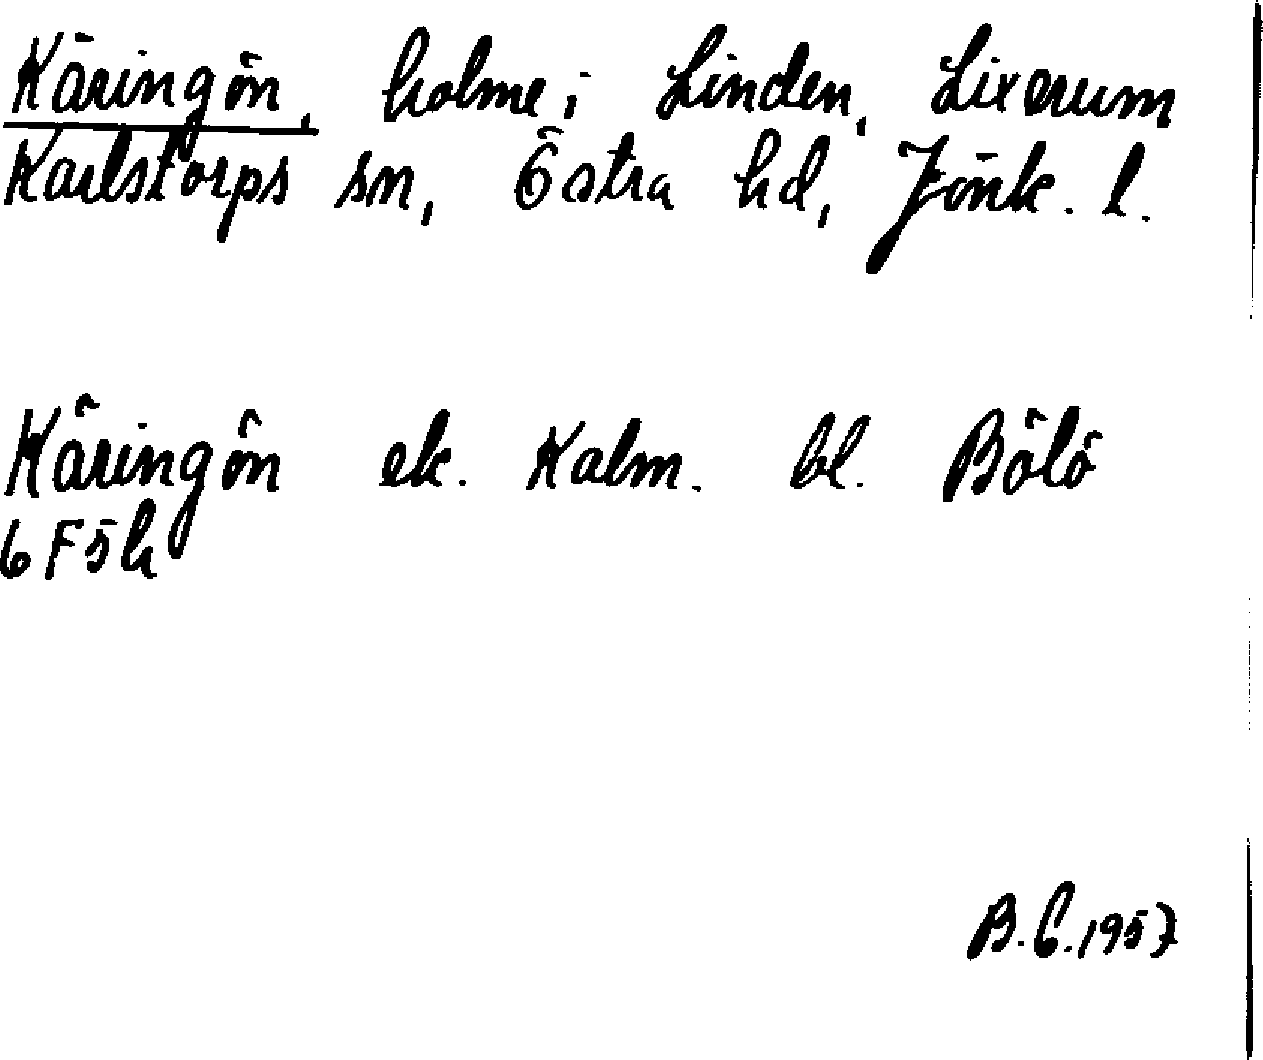 Käringön, holme i Linden, Lixerum
Karlstorps sn, Östra hd, Jönk. l.
Käringön ek. Kalm. bl. Bölö
6F5h
B.C. 1957